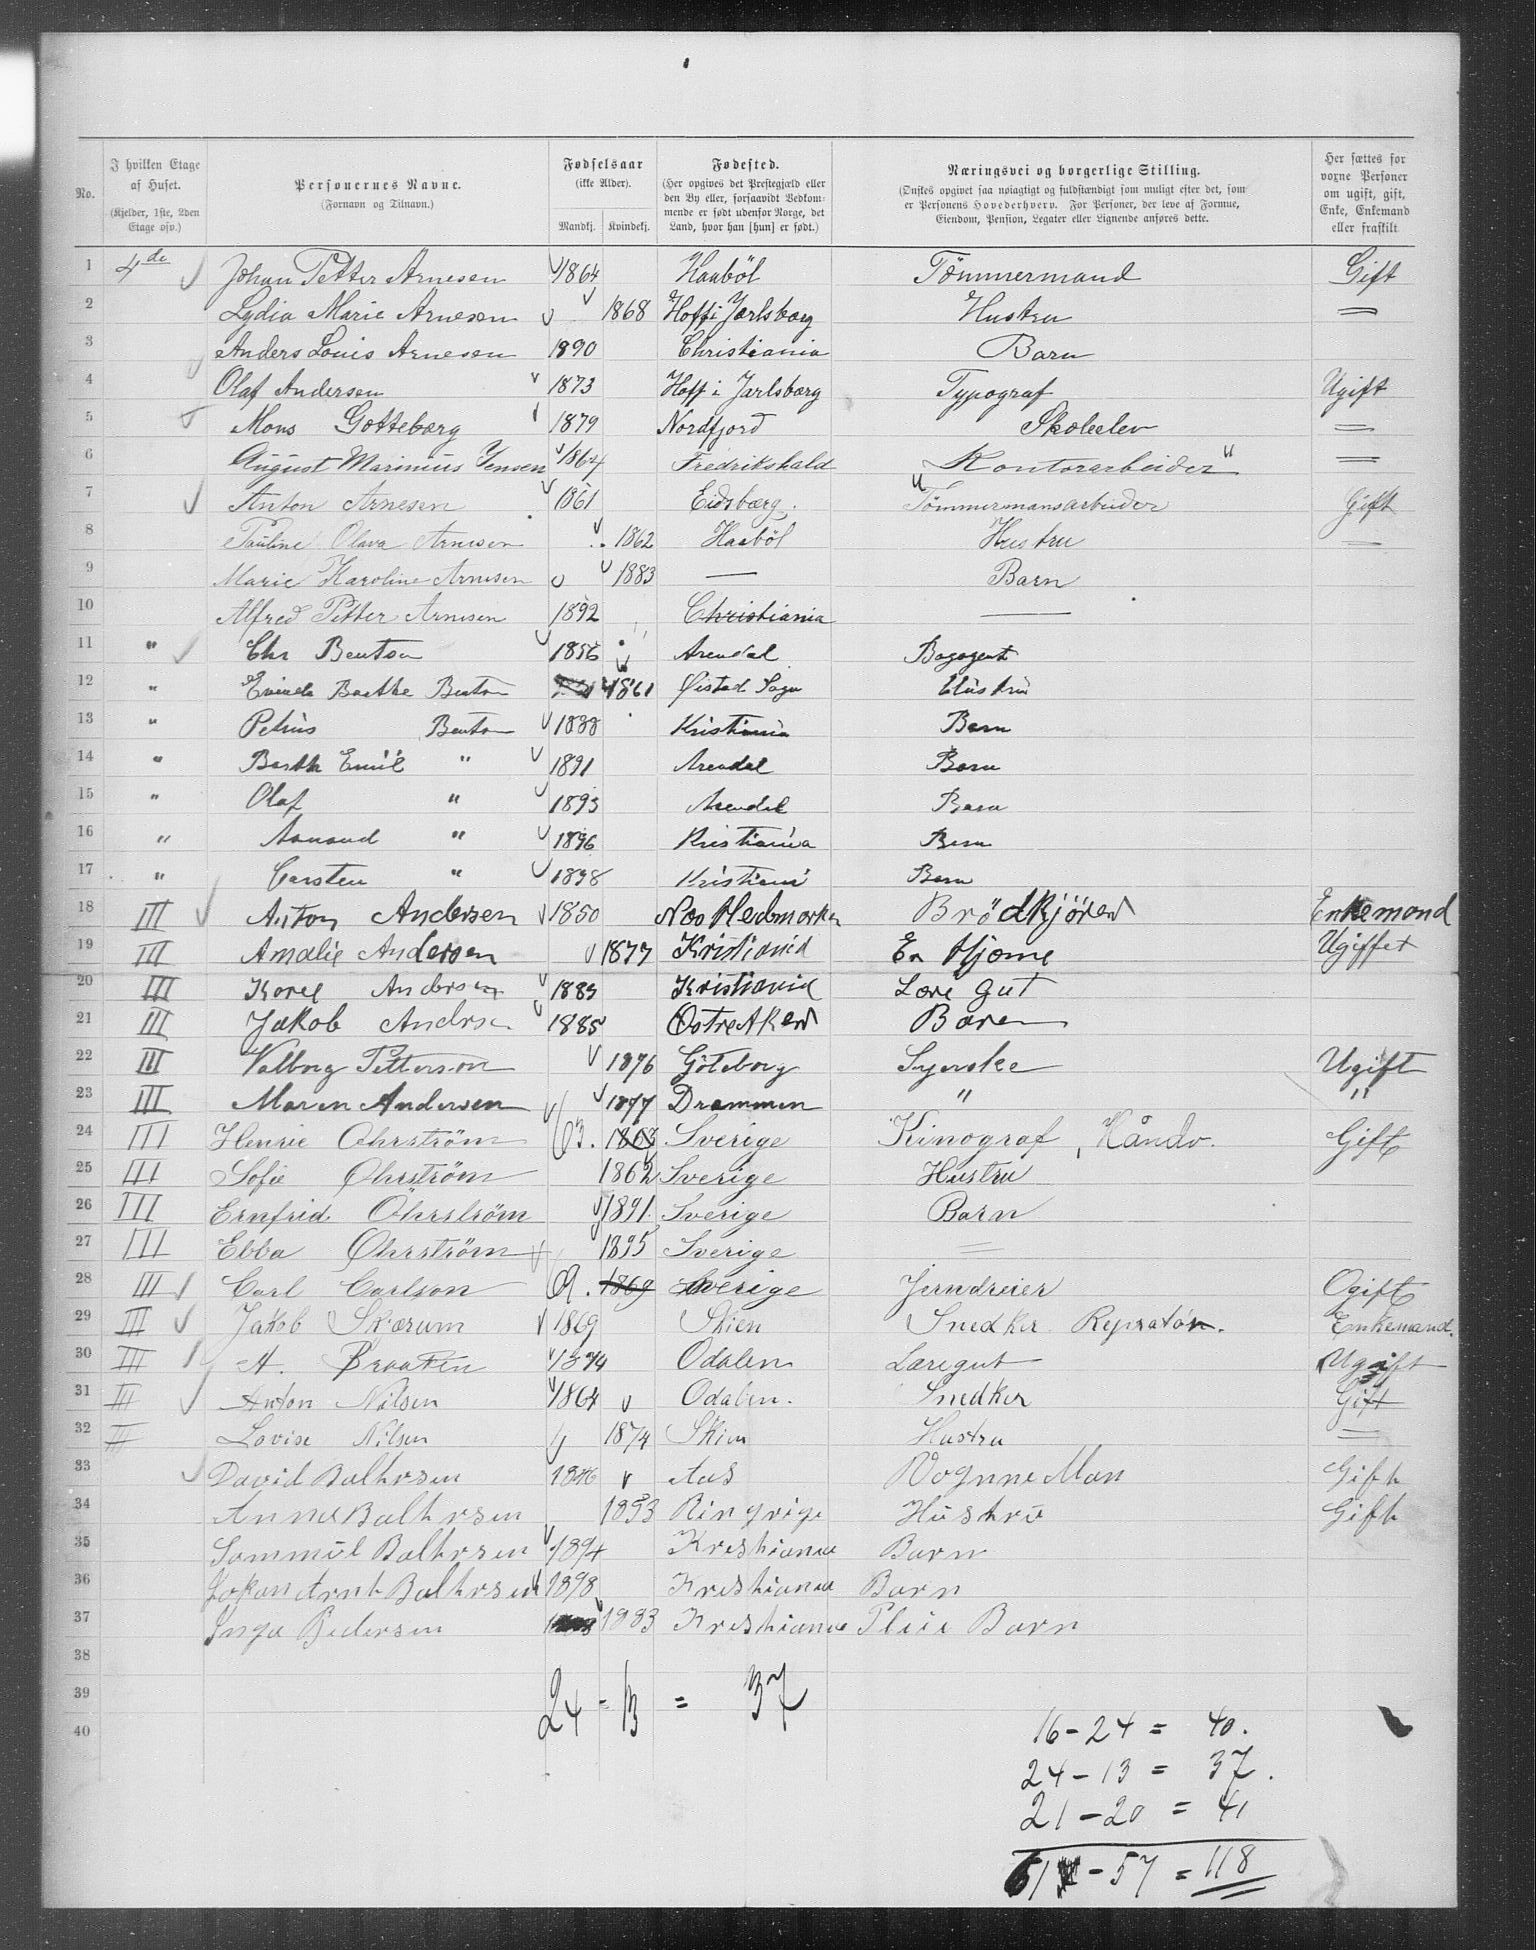 No.
I hvilken Etage af Huset.
(Kjelder, 1ste, 2den Etage osv.)
Personernes Navne.
(Fornavn og Tilnavn.)
Fødselsaar
(ikke Alder).
Mandkj. Kvindekj.
Fødested.
(Her opgives det Prestegjæld eller den By eller, forsaavidt Vedkommende er født udenfor Norge, det Land, hvor han [hun] er født.)
Næringsvei og borgerlige Stilling.
(Ønskes opgivet saa nøiagtigt og fuldstændigt som muligt efter det, som er Personens Hovederhverv. For Personer, der leve af Formue, Eiendom, Pension, Legater eller Lignende anføres dette.
Her sættes for voxne Personer om ugift, gift, Enke, Enkemand eller fraskilt
1 4de Johan Petter Arnesen 1864 Haaböl Tömmermand Gift
2 Lydia Marie Arnesen 1868 Hoff i Jarlsbærg Hustru =
3 Anders Louis Arnesen 1890 Christiania Barn
4 Olaf Andersen 1873 Hoff i Jarlsbærg Typograf Ugift
5 Mons Gotteberg 1879 Nordfjord Skoleelev =
6 August Marinius Jensen 1864 Fredrikshald Kontorarbeider =
7 Anton Arnesen 1861 Eidsbærg. Tömmermansarbeider Gift
8 Pauline Olava Arnesen 1862 Haaböl Hustru —
9 Marie Karoline Arnesen 1883 — Barn
10 Alfred Petter Arnesen 1892 Christiania —
11 " Chr Bentson 1856 Arendal Bogagent
12 " Barthe Bentson 1861 Øistad Sogn Hustru
13 " Petrus Bentson 1888 Kristiania Barn
14 " Barth Emil " 1891 Arendal Barn
15 " Olaf " 1893 Arendal Barn
16 " Armand " 1896 Kristiania Barn
17 " Carsten " 1898 Kristiani Barn
18 III Anton Andersen 1850 Nos Hedmarken Brödkjörer Enkemand
19 III Amalie Andersen 1877 Kristiania Er Hjome Ugiffet
20 III Karel Andersen 1883 Kristiania Lære gut
21 III Jakob Andrsen 1885 Ostre Aker Baren
22 III Valborg Petterson 1876 Göteborg Syerske Ugift
23 III Maren Andersen 1877 Drammen " "
24 III Henrie Öhrström 63. 1863 Sverige Kinograf, Håndv. Gift
25 III Sofie Öhrström 1862 Sverige Hustru
26 III Ernfrid Öhrström 1891. Sverige Barn
27 III Ebba Öhrström 1895 Sverige =
28 III Carl Carlson 69. 1869 Sverige Jerndreier Ogift
29 III Jakob Skjærum 1869 Skien Snedker Repratör. Enkemand.
30 III A. Braaten 1874 Odalen Læregut Ugift
31 III Anton Nilsen 1864 Odalen. Snedker Gift
32 III Lovise Nilsen 1874 Skien Hustru =
33 David Balhrsen 1846 Aas Wognne Man Gift
34 Anne Balhrsen 1853 Ringrige Hustru Gift
35 Sammul Balhrsen 1894 Kreshiania Barn
36 Johan Arnt Balhrsen 1898 Kreshiania Barn
37 Inga Pedersen 1883 Kreshiania Pleie Barn
38
24 - 13 = 37
39
40
16 - 24 = 40.
24 - 13 = 37.
21 - 20 = 41
61 - 57 = 118